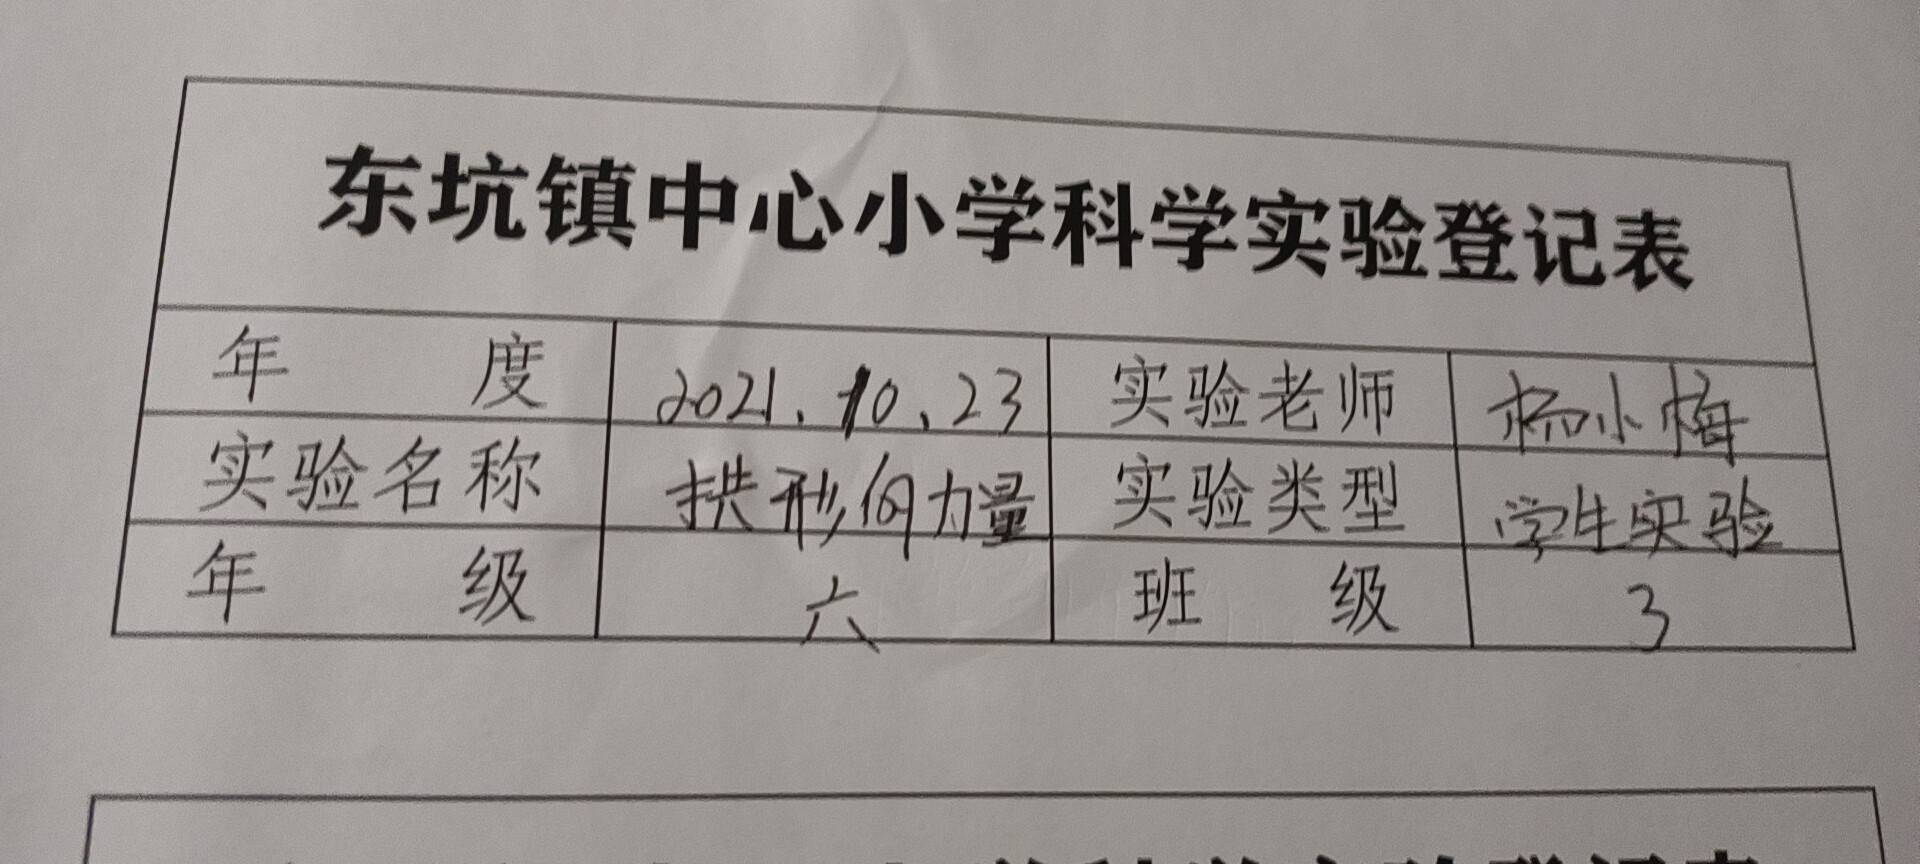 东坑镇中心小学科学实验登记表
年 度 2021.10.23 实验老师 杨小梅
实验名称 拱形的力量 实验类型 学生实验
年 级 六 班 级 3